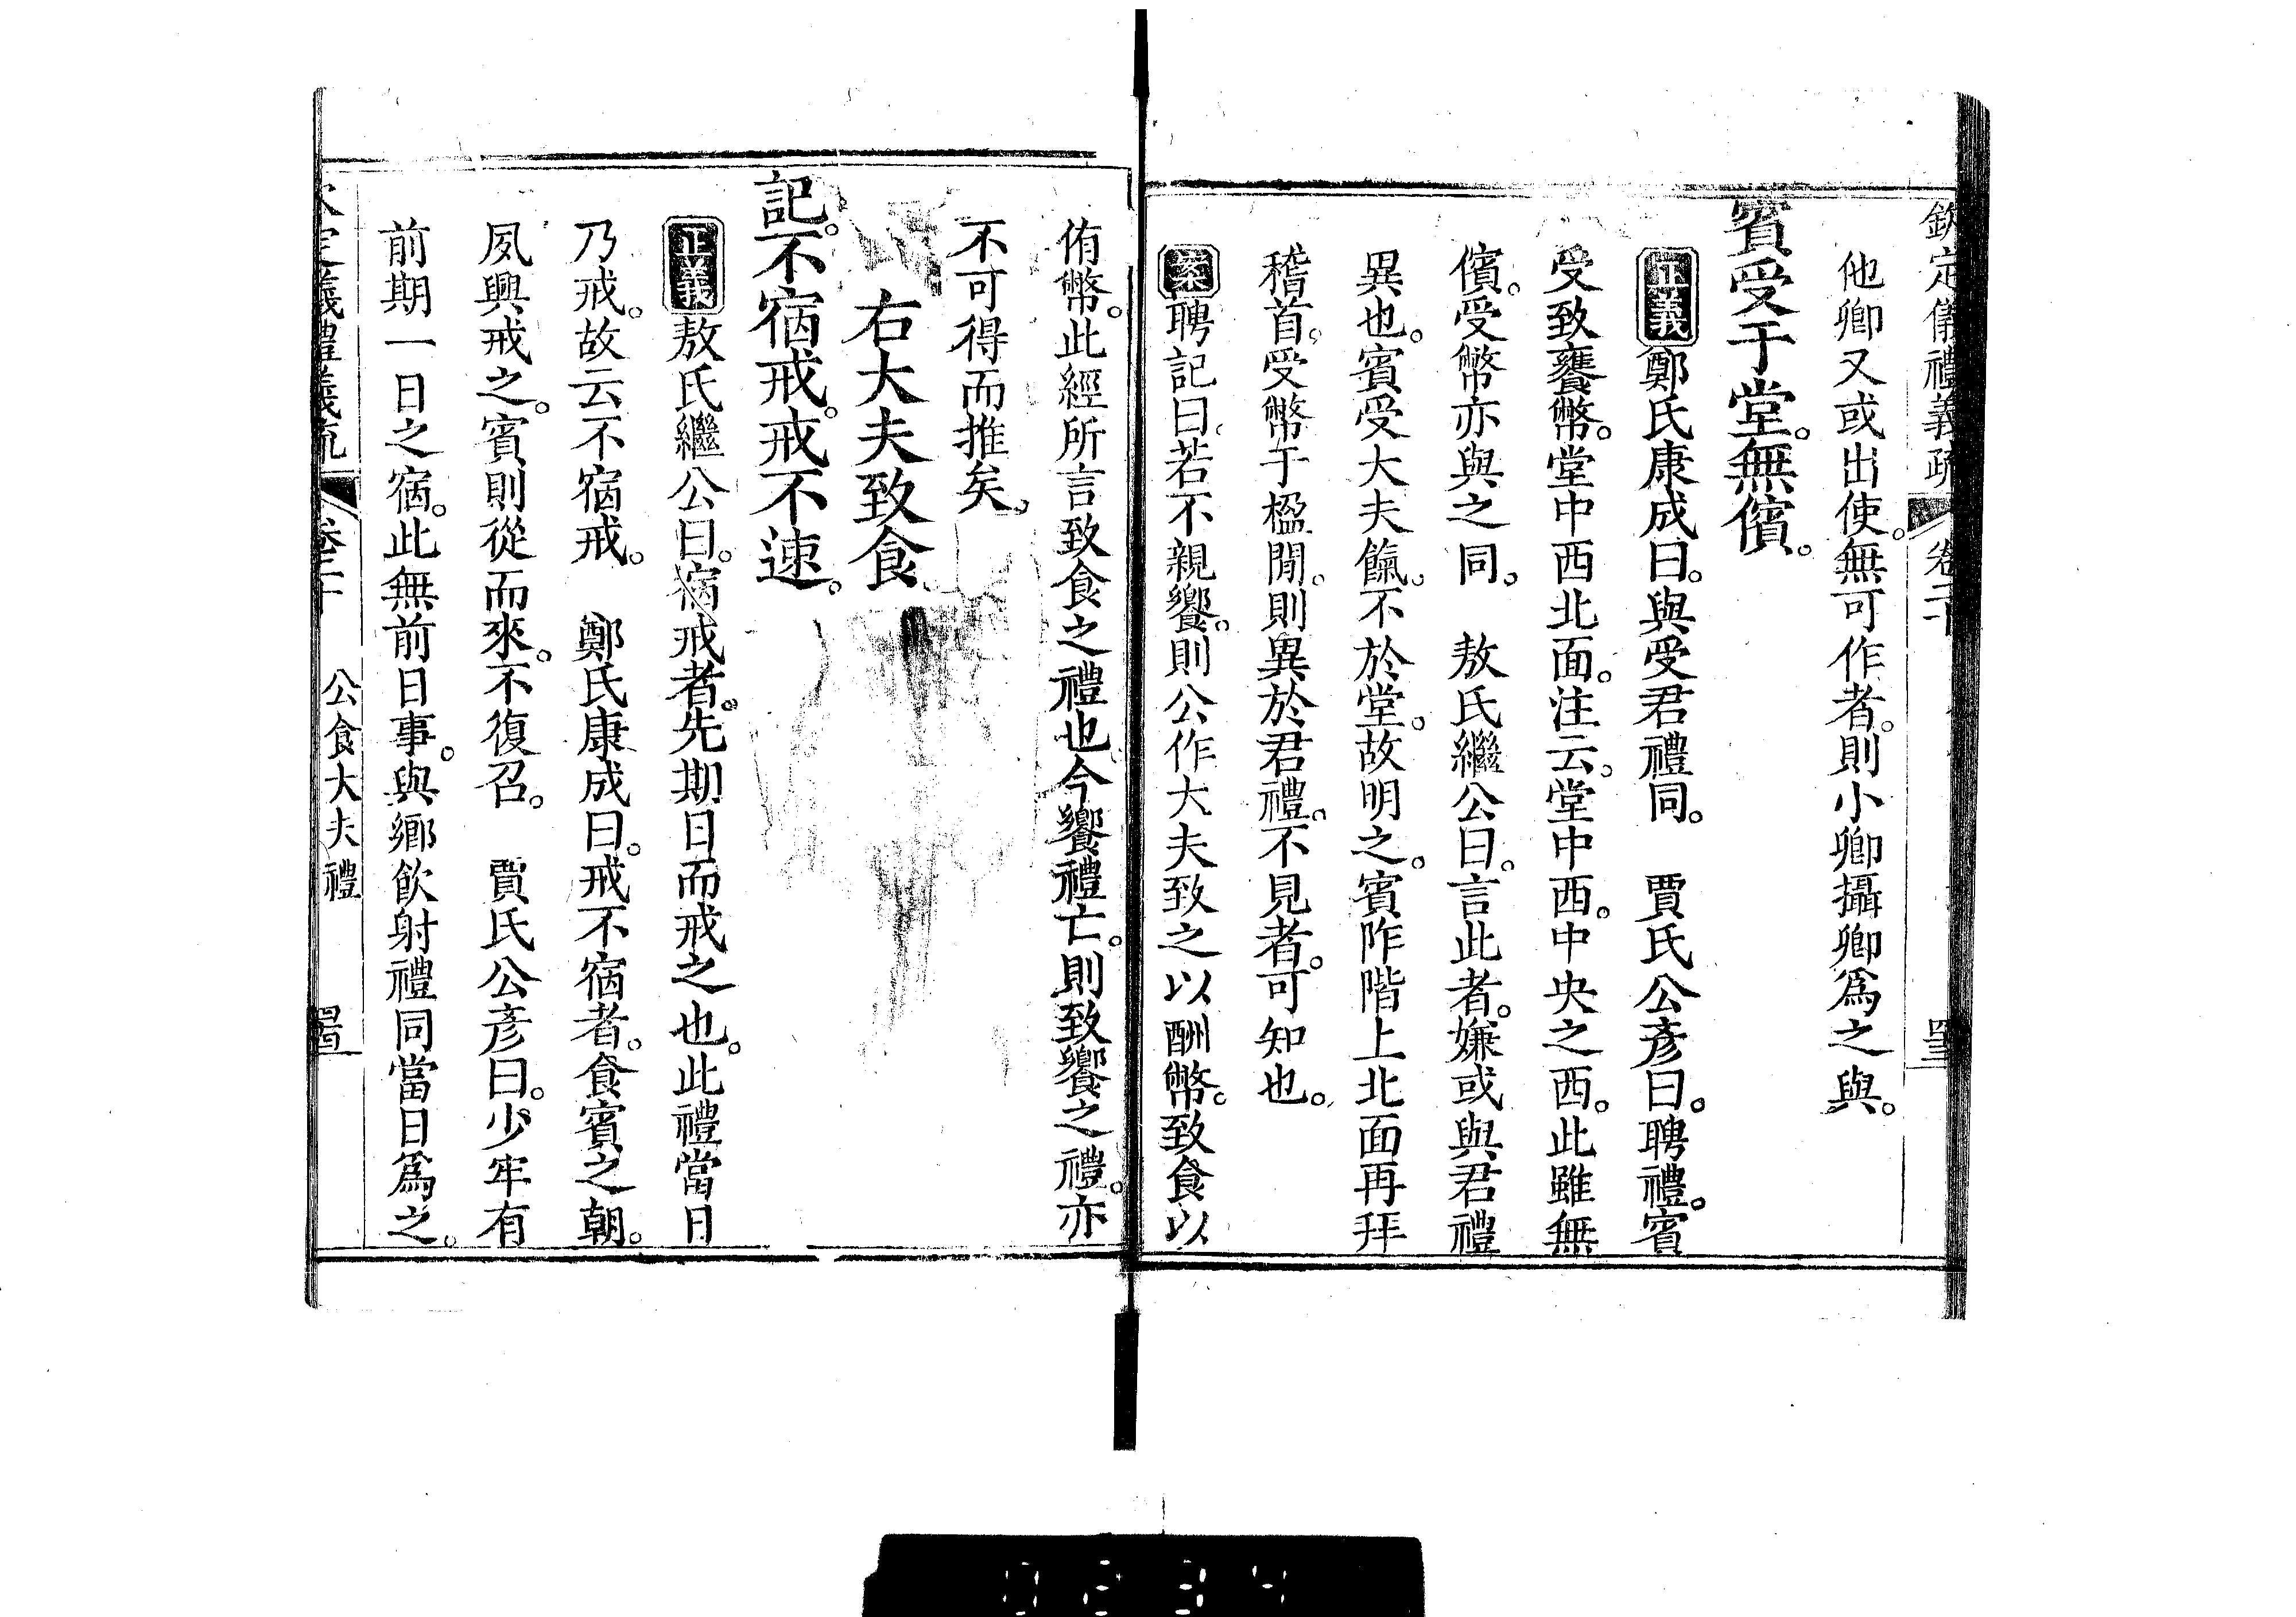 欽定儀禮義疏 卷二十
他卿又或出使。無可作者。則小卿攝卿爲之與。
賓受于堂。無儐。
正義鄭氏康成曰。與受君禮同。 賈氏公彥曰。聘禮。賓
受致饔幣。堂中西北面。注云。堂中西。中央之西。此雖無
儐。受幣亦與之同。 敖氏繼公曰。言此者。嫌或與君禮
異也。賓受大夫餼。不於堂。故明之。賓阼階上北面再拜
稽首。受幣于楹閒。則異於君禮。不見者。可知也。
案聘記曰。若不親饗。則公作大夫致之以酬幣。致食以
侑幣。此經所言致食之禮也。今饗禮亡。則致饗之禮。亦
不可得而推矣。
右大夫致食
記。不宿戒。戒不速。
正義敖氏繼公曰。宿戒者。先期日而戒之也。此禮當日
乃戒。故云不宿戒。 鄭氏康成曰。戒不宿者。食賓之朝。
夙興戒之。賓則從而來。不復召。 賈氏公彥曰。少牢有
前期一日之宿。此無前日事。與鄉飲射禮同當日爲之。
定義禮義疏 卷二十 公食大夫禮